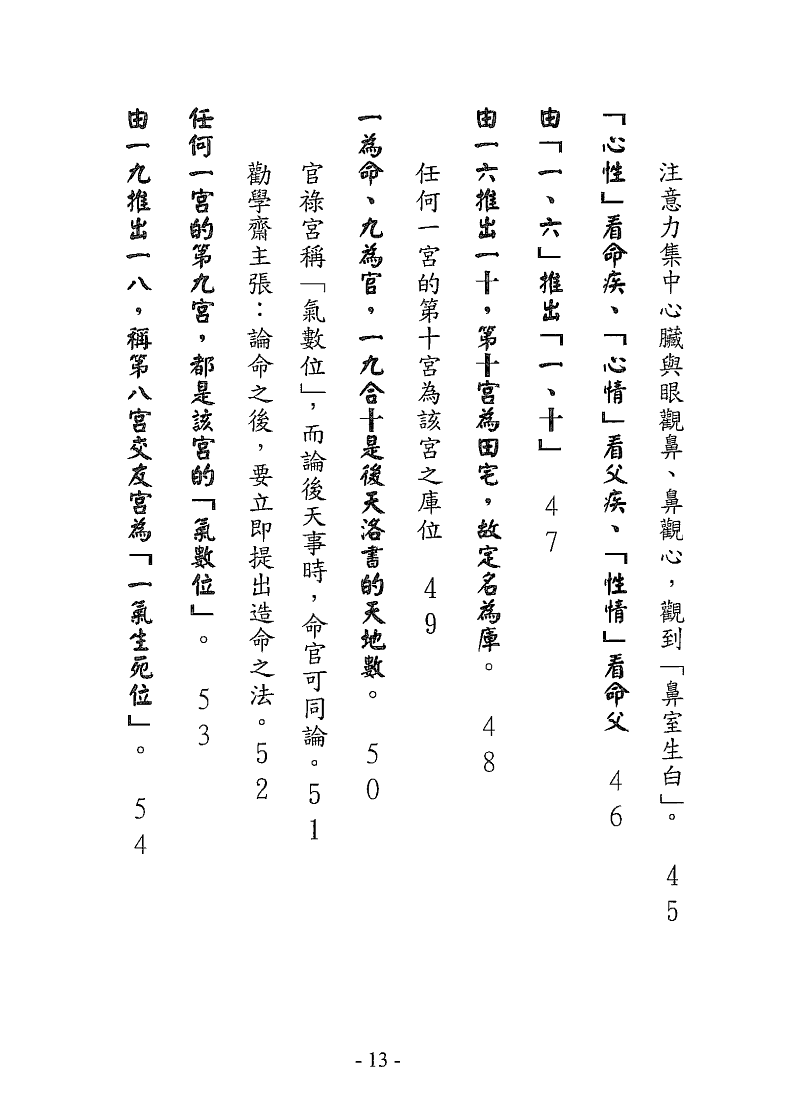 注意力集中心臟與眼觀鼻、鼻觀心，觀到「鼻室生白」。 45
「心性」看命疾、「心情」看父疾、「性情」看命父 46
由「一、六」推出「一、十」 47
由一六推出一十，第十宮為田宅，故定名為庫。 48
任何一宮的第十宮為該宮之庫位 49
一為命、九為官，一九合十是後天洛書的天地數。 50
官祿宮稱「氣數位」，而論後天事時，命官可同論。51
勸學齋主張：論命之後，要立即提出造命之法。52
任何一宮的第九宮，都是該宮的「氣數位」。 53
由一九推出一八，稱第八宮交友宮為「一氣生死位」。 54
- 13 -